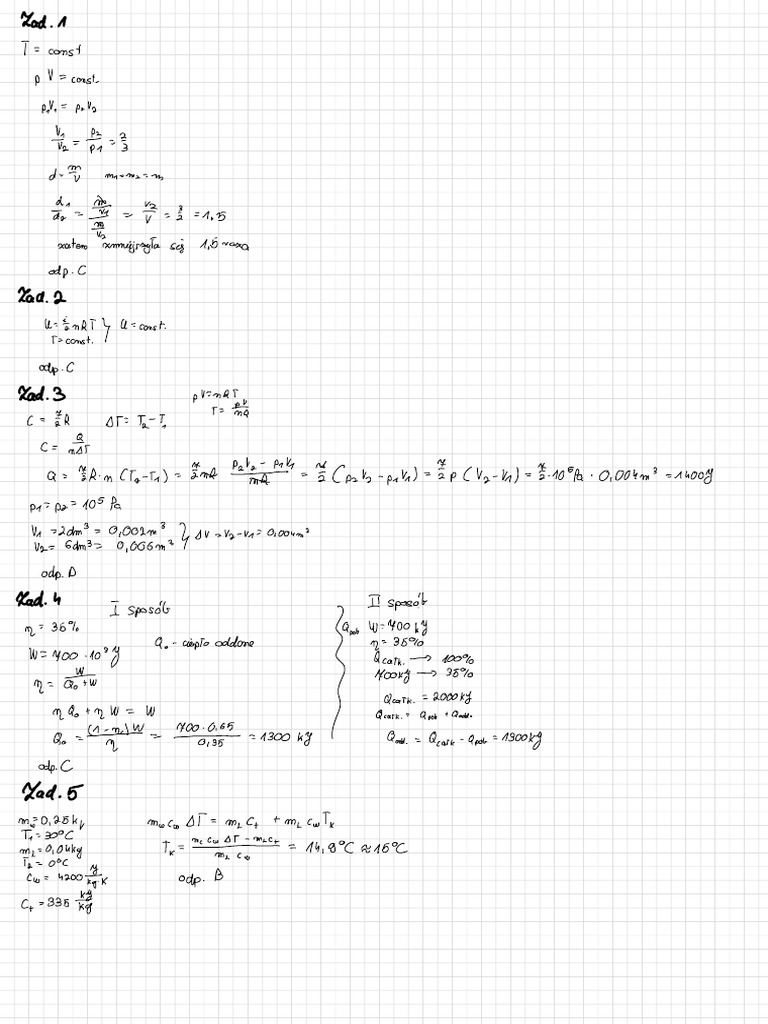 Zad. 1
T = const
p V = const.
p₁V₁ = p₂V₂
V₁/V₂ = p₂/p₁ = 2/3
d = m/V   m₁=m₂=m
d₁/d₂ = (m/V₁)/(m/V₂) = V₂/V = 3/2 = 1,5
zatem zmniejszyła się 1,5 raza
odp. C
Zad. 2
U = i/2 nRT } U = const.
T = const.
odp. C
Zad. 3
pV = nRT
T = pV/nR
C = 7/2 R   ΔT = T₂ - T₁
C = Q/nΔT
Q = 7/2 R · n (T₂-T₁) = 7/2 nR (p₂V₂ - p₁V₁)/nR = 7/2 (p₂V₂ - p₁V₁) = 7/2 p (V₂-V₁) = 7/2 · 10⁵ Pa · 0,004 m³ = 1400 J
p₁ = p₂ = 10⁵ Pa
V₁ = 2dm³ = 0,002 m³ } ΔV = V₂-V₁ = 0,004 m³
V₂ = 6dm³ = 0,006 m³
odp. D
Zad. 4
I sposób
η = 35%
Q₀ - ciepło oddane
W = 700 · 10³ J
η = W/(Q₀ + W)
η Q₀ + η W = W
Q₀ = (1-η)W/η = 700 · 0,65/0,35 = 1300 kJ
odp. C
II sposób
Qpob W = 700 kJ
η = 35%
Qcałk. → 100%
700kJ → 35%
Qcałk. = 2000 kJ
Qcałk. = Qpob + Qodd.
Qodd. = Qcałk - Qpob = 1300 kJ
Zad. 5
mw = 0,25 kg
T₁ = 30°C
mL = 0,04 kg
T₂ = 0°C
cw = 4200 J/kg·K
Ct = 335 kJ/kg
mw cw ΔT = mL Ct + mL cw Tk
Tk = (mL cw ΔT - mL Ct)/(mL cw) = 14,8°C ≈ 15°C
odp. B